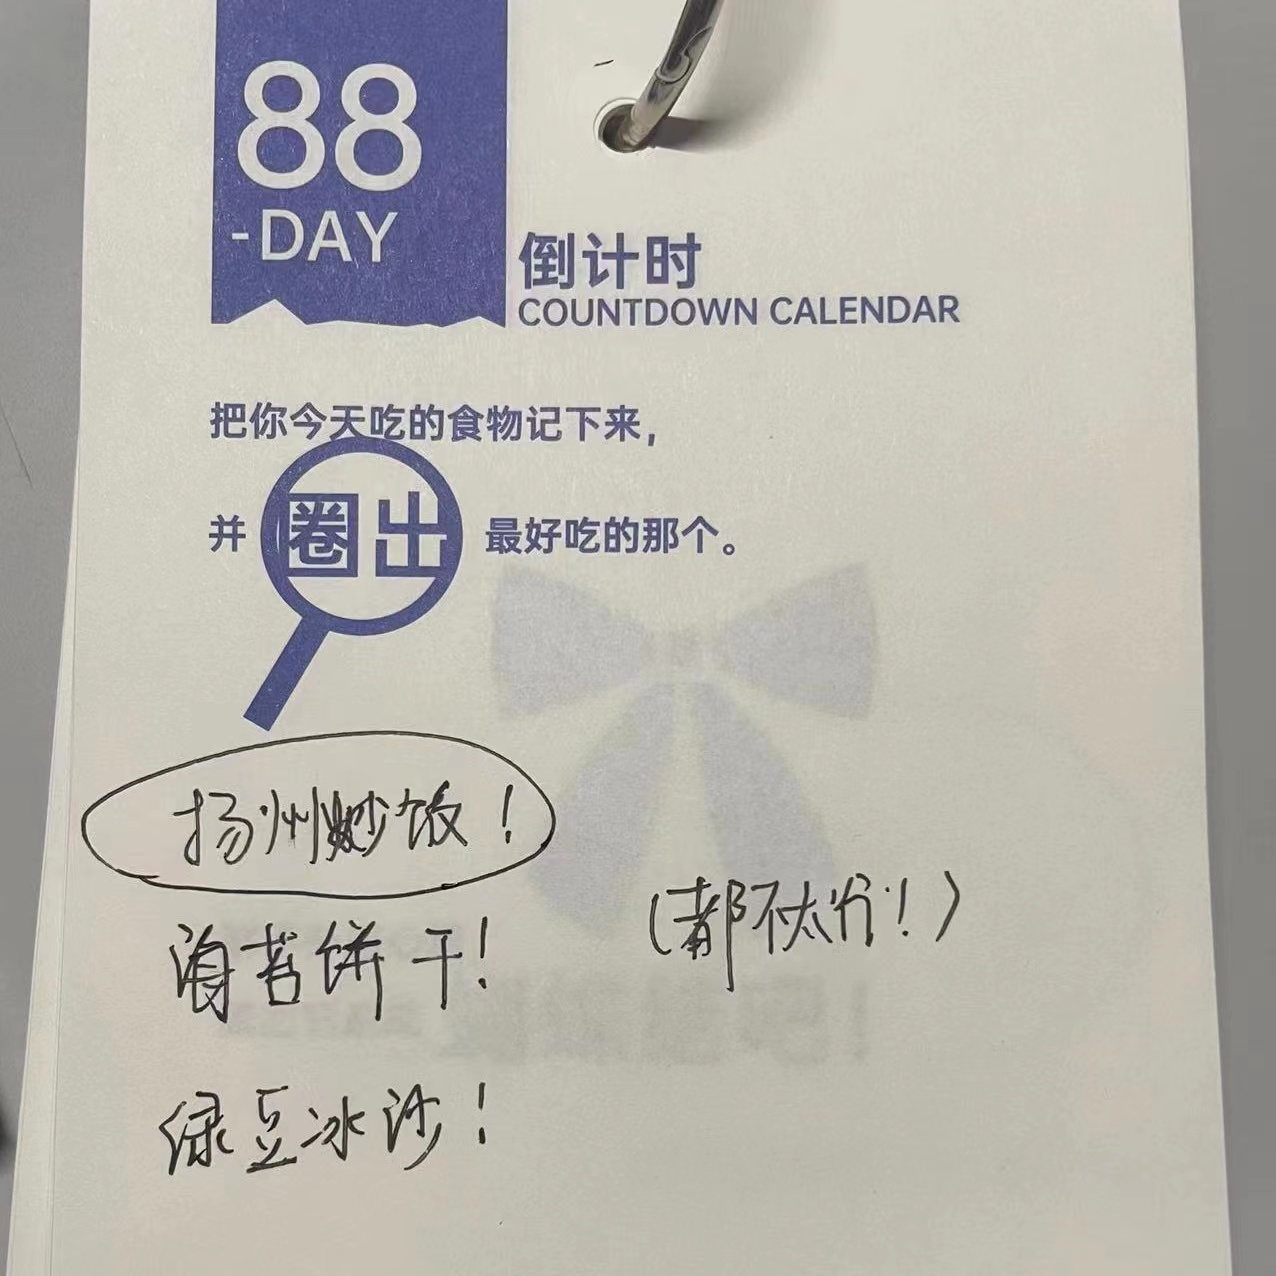 88
-DAY
倒计时
COUNTDOWN CALENDAR
把你今天吃的食物记下来，
并 圈出 最好吃的那个。
扬州炒饭！
海苔饼干！
（都不太行！）
绿豆冰沙！